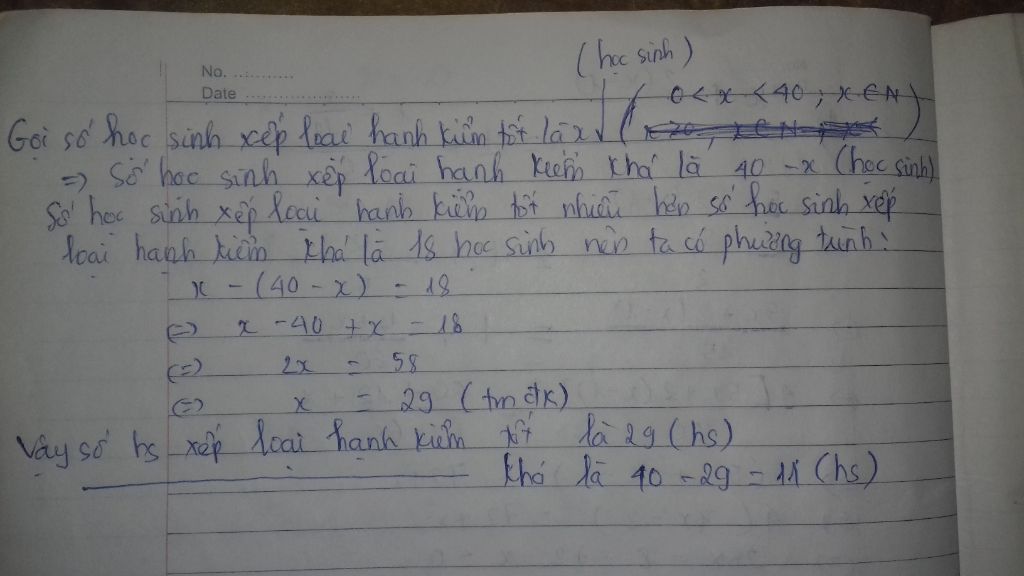 No. ............
Date ......................
(học sinh)
Gọi số học sinh xếp loại hạnh kiểm tốt là x (0 < x < 40 ; x ∈ N)
=> Số học sinh xếp loại hạnh kiểm khá là 40 - x (học sinh)
Số học sinh xếp loại hạnh kiểm tốt nhiều hơn số học sinh xếp
loại hạnh kiểm khá là 18 học sinh nên ta có phương trình:
x - (40 - x) = 18
<=> x - 40 + x = 18
<=> 2x = 58
<=> x = 29 (tm đk)
Vậy số hs xếp loại hạnh kiểm tốt là 29 (hs)
khá là 40 - 29 = 11 (hs)